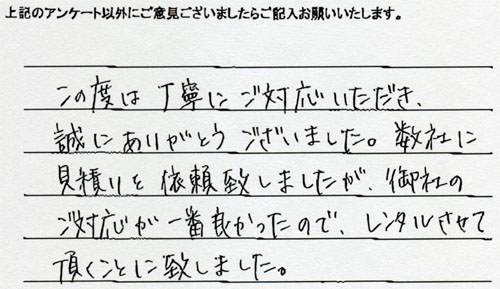 上記のアンケート以外にご意見ございましたらご記入お願いいたします。
この度は丁寧にご対応いただき、
誠にありがとうございました。数社に
見積りを依頼致しましたが、御社の
ご対応が一番良かったので、レンタルさせて
頂くことに致しました。